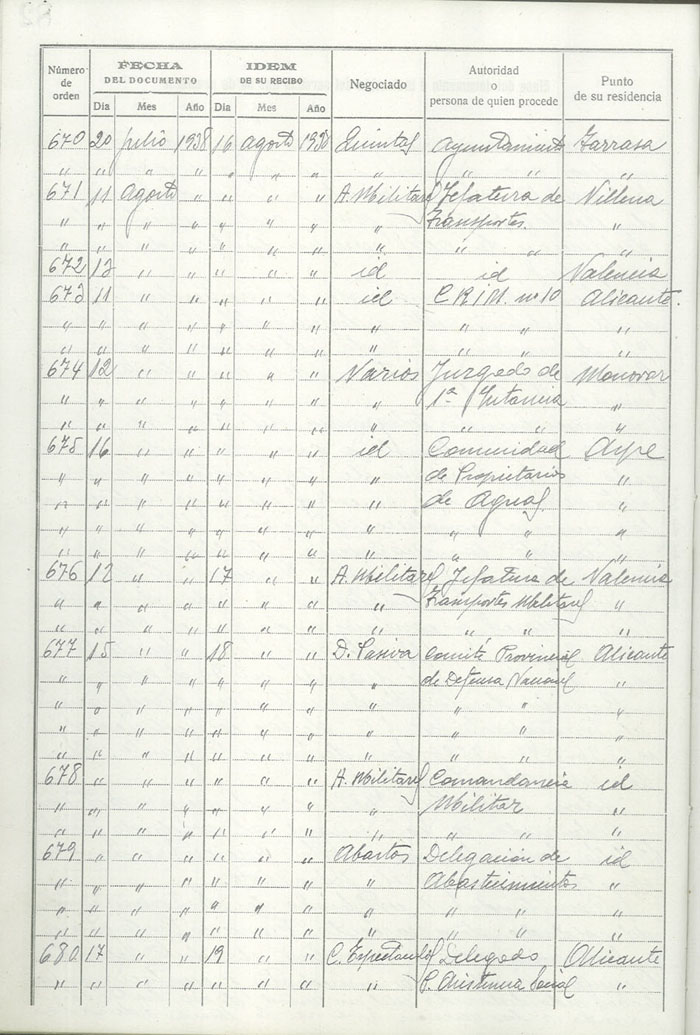 Número de orden FECHA DEL DOCUMENTO IDEM DE SU RECIBO Negociado Autoridad o persona de quien procede Punto de su residencia
Día Mes Año Día Mes Año
670 20 julio 1938 16 agosto 1938 Quintas Ayuntamiento Tarrasa
" " " " " " " " " "
671 11 Agosto " " " " A. Militares Jefatura de Villena
" " " " " " " " Transportes. "
" " " " " " " " " " "
672 12 " " " " " id id Valencia
673 11 " " " " " id C.R.I.M. nº 10 Alicante.
" " " " " " " " " " "
" " " " " " " " " " "
674 12 " " " " " Varios Juzgado de Monovar
" " " " " " " " 1ª Instancia "
" " " " " " " " " " "
675 16 " " " " " id Comunidad Aspe
" " " " " " " " de Propietarios "
" " " " " " " " de Aguas "
" " " " " " " " " " "
" " " " " " " " " " "
676 12 " " 17 " " A. Militares Jefatura de Valencia
" " " " " " " " Transportes Militares "
" " " " " " " " " " "
677 15 " " 18 " " D. Pasiva Comité Provincial Alicante
" " " " " " " " de Defensa Nacional "
" " " " " " " " " " "
" " " " " " " " " " "
" " " " " " " " " " "
678 " " " " " " A. Militares Comandancia id
" " " " " " " " Militar "
" " " " " " " " " " "
679 " " " " " " Abastos Delegación de id
" " " " " " " " Abastecimientos "
" " " " " " " " " " "
" " " " " " " " " " "
680 17 " " 19 " " C. Delegado Alicante
" " " " " " " " P. Asistencia Social "